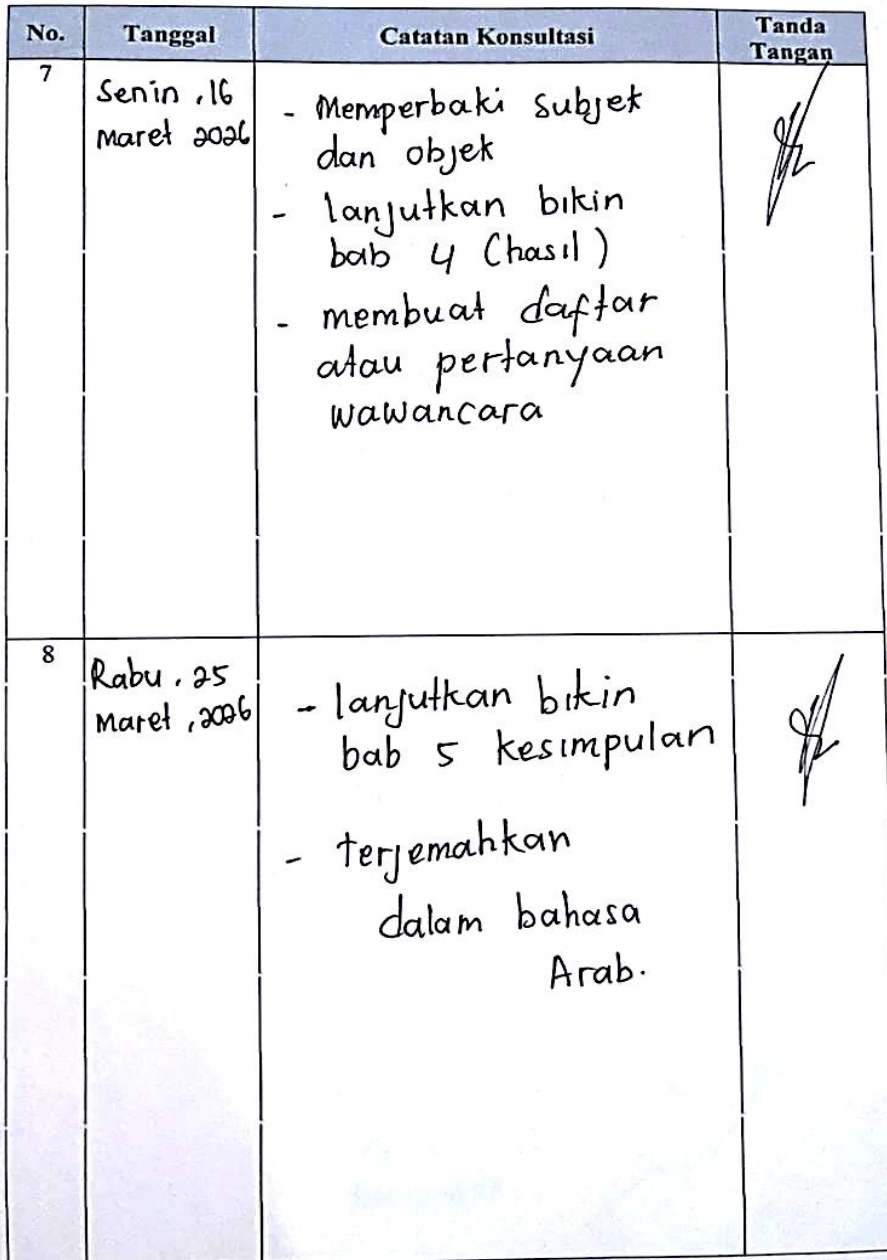 No. Tanggal Catatan Konsultasi Tanda Tangan
7
Senin, 16
Maret 2026
- Memperbaki subjek
dan objek
- lanjutkan bikin
bab 4 (hasil)
- membuat daftar
atau pertanyaan
wawancara
8
Rabu, 25
Maret, 2026
- lanjutkan bikin
bab 5 kesimpulan
- terjemahkan
dalam bahasa
Arab.